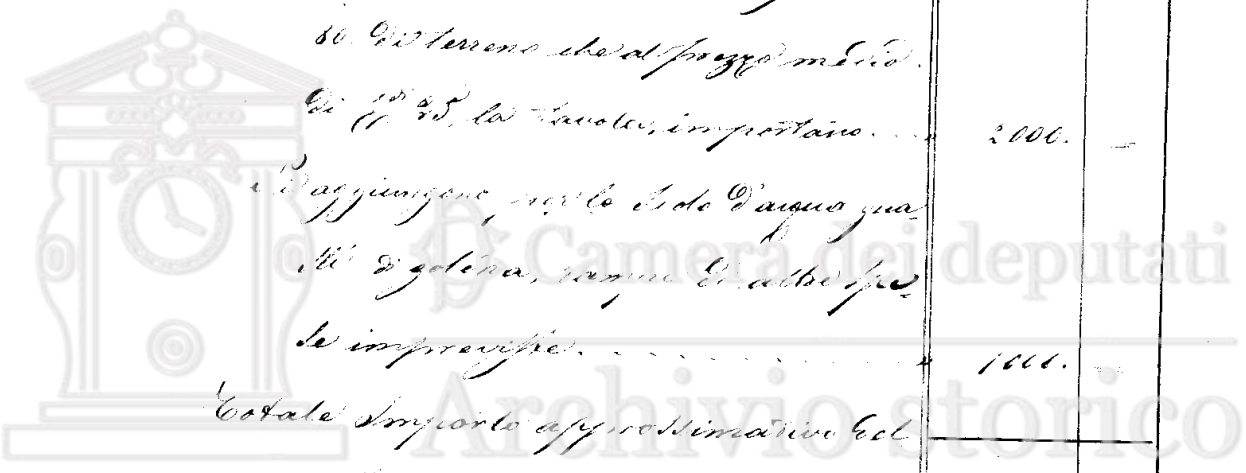 80. di terreno che al prezzo medio
di 25, la Tavola, importano . . . " 2000. —
S'aggiungono per le d'acqua gua-
sti di altre spe-
se impreviste. . . . . . . . . " 1000. —
Totale Importo approssimativo
Camera dei deputati
Archivio storico